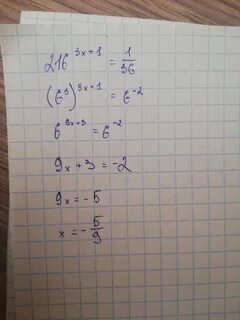 216^{3x+1} = \frac{1}{36}
(6^3)^{3x+1} = 6^{-2}
6^{9x+3} = 6^{-2}
9x + 3 = -2
9x = -5
x = -\frac{5}{9}